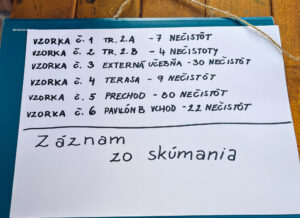 VZORKA č. 1 TR. 2.A - 7 NEČISTÔT
VZORKA č. 2 TR. 2.B - 4 NEČISTOTY
VZORKA č. 3 EXTERNÁ UČEBŇA - 30 NEČISTÔT
VZORKA č. 4 TERASA - 9 NEČISTÔT
VZORKA č. 5 PRECHOD - 80 NEČISTÔT
VZORKA č. 6 PAVILÓN B VCHOD - 22 NEČISTÔT
Záznam
zo skúmania